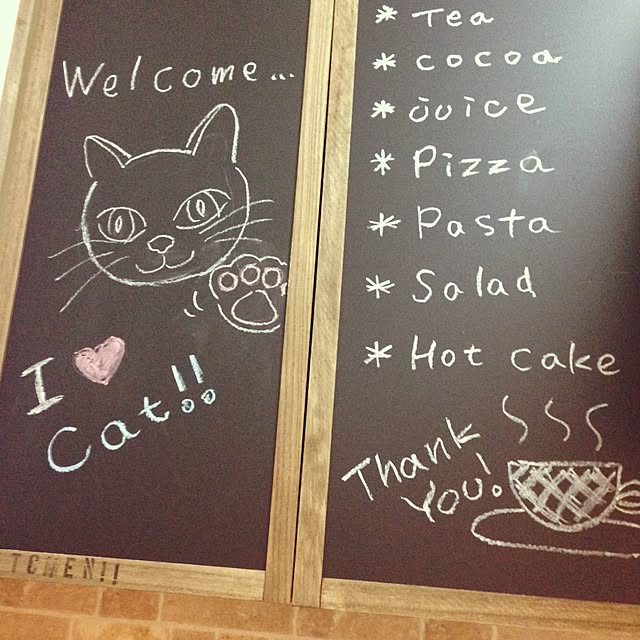 Welcome...
I ♥
Cat!!
TCHEN!!
* Tea
* cocoa
* juice
* Pizza
* Pasta
* Salad
* Hot cake
Thank
You!